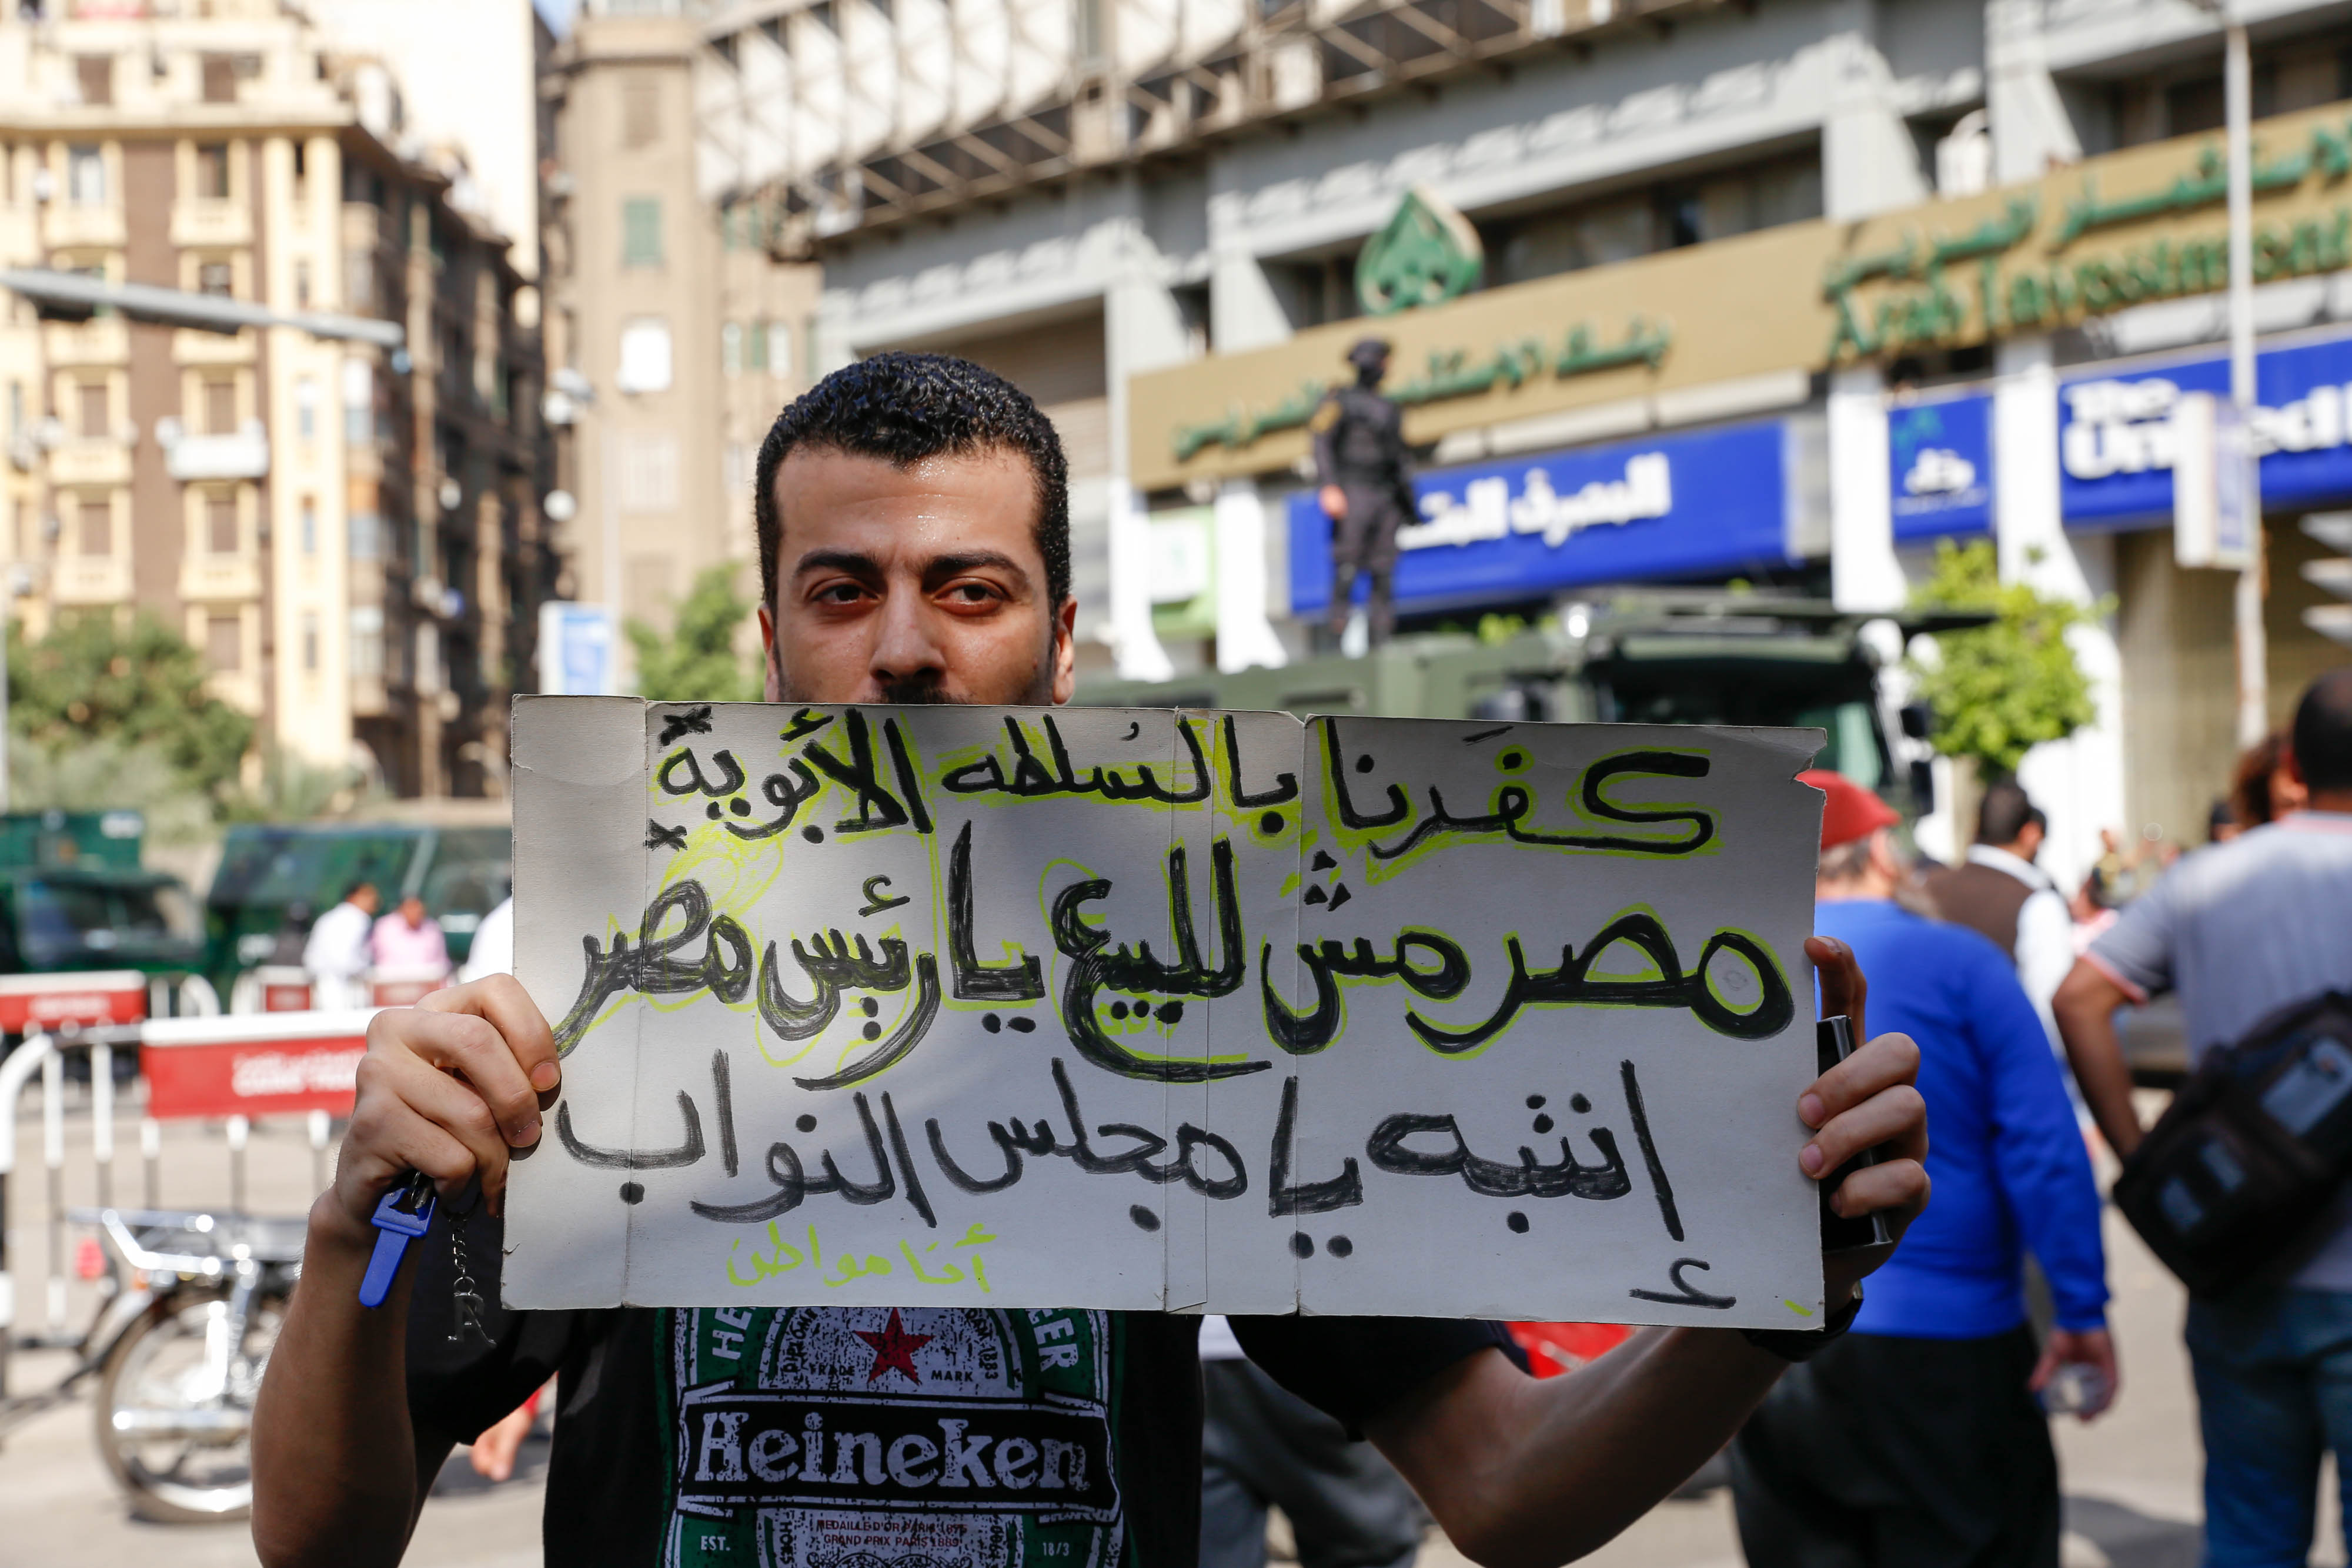 الاستثمار العربي
Arab Investment
بنك الاستثمار العربي
المصرف المتحد
The United
كفَرنا بالسُلطه الأبوية
مصر مش للبيع يا رئيس مصر
إنتبه يا مجلس النواب
أنا مواطن
TRADE MARK
Heineken
EST. 18/3
MEDAILLE D'OR PARIS 1875
GRAND PRIX PARIS 1889